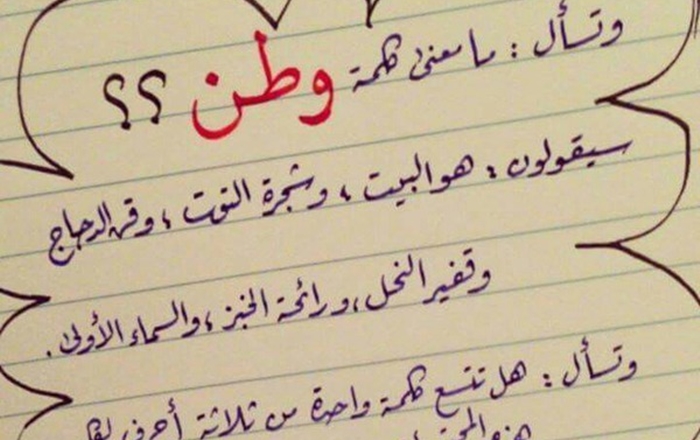 وتسأل : ما معنى كلمة وطن ؟؟
سيقولون : هو البيت ، وشجرة التوت ، وقن الدجاج
وقفير النحل ، ورائحة الخبز ، والسماء الأولى .
وتسأل : هل تتسع كلمة واحدة من ثلاثة أحرف لكل
هذه